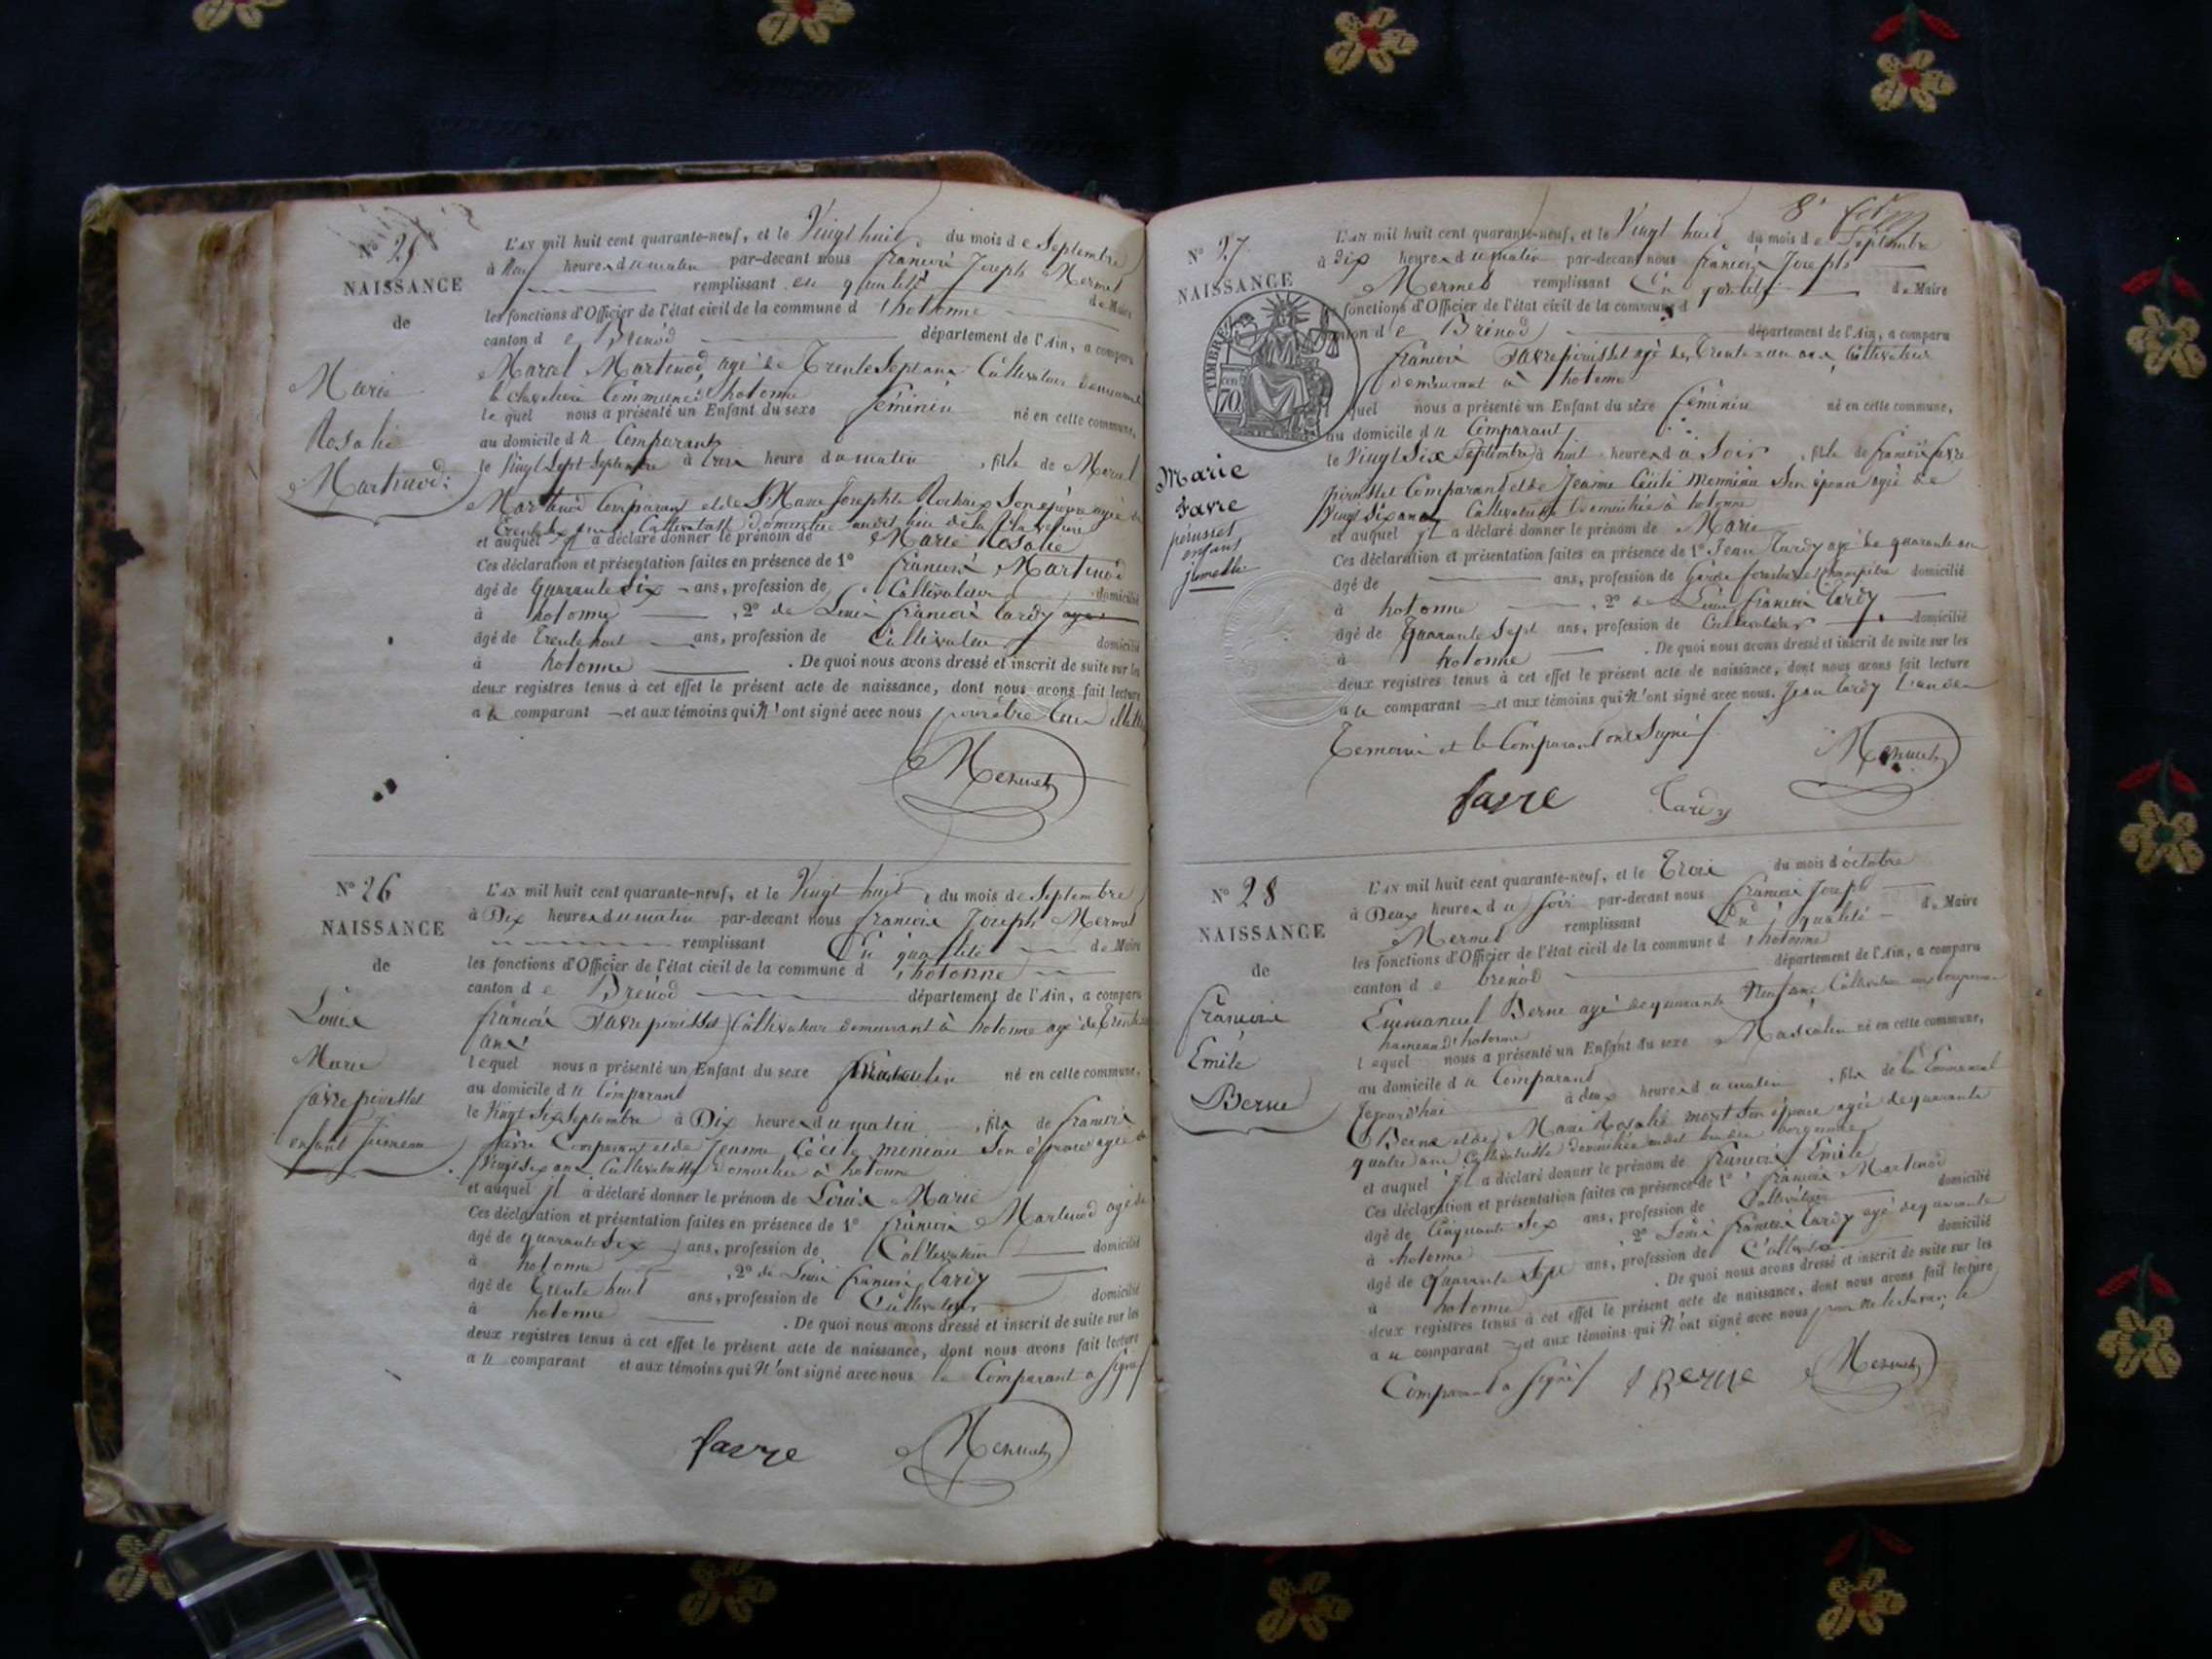 N° 25
NAISSANCE
de
Marie
Rosalie
Martinod
L'AN mil huit cent quarante-neuf, et le Vingt huit du mois de Septembre
à neuf heures du matin par-devant nous françois Joseph Mermet
remplissant en qualité de Maire
les fonctions d'Officier de l'état civil de la commune d'hotonne
canton de Brénod département de l'Ain, a comparu
Marcel Martinod agé de Trente Sept ans Cultivateur demeurant
Commune d'hotonne
le quel nous a présenté un Enfant du sexe féminin né en cette commune,
au domicile du Comparant
le Vingt Sept Septembre à heure du matin, fille de Marcel
Martinod Comparant et de Marie Josephte Son épouse agée de
Cultivatrice
et auquel il a déclaré donner le prénom de Marie Rosalie
Ces déclaration et présentation faites en présence de 1° françois Martinod
âgé de quarante Six ans, profession de Cultivateur domicilié
à hotonne , 2° de Louis françois tardy
âgé de Trente huit ans, profession de Cultivateur domicilié
à hotonne . De quoi nous avons dressé et inscrit de suite sur les
deux registres tenus à cet effet le présent acte de naissance, dont nous avons fait lecture
au comparant et aux témoins qui n'ont signé avec nous
Mermet
N° 26
NAISSANCE
de
Louis
Marie
favre perusset
enfant Jumeau
L'AN mil huit cent quarante-neuf, et le Vingt huit, du mois de Septembre
à Dix heures du matin par-devant nous françois Joseph Mermet
remplissant En qualité de Maire
les fonctions d'Officier de l'état civil de la commune d'hotonne
canton de Brénod département de l'Ain, a comparu
françois favre perusset Cultivateur demeurant à hotonne agé de Trente
ans
lequel nous a présenté un Enfant du sexe Masculin né en cette commune,
au domicile du Comparant
le Vingt Six Septembre à Dix heures du matin, fils de françois
favre Comparant et de Jeanne Cécile monnian Son épouse agée de
Vingt Six ans Cultivatrice domiciliée à hotonne
et auquel il a déclaré donner le prénom de Louis Marie
Ces déclaration et présentation faites en présence de 1° françois Martinod agé de
âgé de quarante Six ans, profession de Cultivateur domicilié
à hotonne , 2° de Louis françois tardy
âgé de Trente huit ans, profession de Cultivateur domicilié
à hotonne . De quoi nous avons dressé et inscrit de suite sur les
deux registres tenus à cet effet le présent acte de naissance, dont nous avons fait lecture
au comparant et aux témoins qui n'ont signé avec nous le Comparant a Signé
favre Mermet
8e
N° 27
NAISSANCE
TIMBRE
70
Marie
Favre
perusset
enfant
jumelle
L'AN mil huit cent quarante-neuf, et le Vingt huit du mois de Septembre
à Dix heures du matin par-devant nous françois Joseph
Mermet remplissant En qualité de Maire
fonctions d'Officier de l'état civil de la commune d
canton de Brénod département de l'Ain, a comparu
françois favre perusset agé de Trente ans Cultivateur
demeurant à hotonne
quel nous a présenté un Enfant du sexe féminin né en cette commune,
au domicile du Comparant
le Vingt Six Septembre à huit heures du Soir, fille de françois favre
perusset Comparant et de Jeanne Cécile Monnian Son épouse agée de
Vingt Six ans Cultivatrice Domiciliée à hotonne
et auquel il a déclaré donner le prénom de Marie
Ces déclaration et présentation faites en présence de 1° Jean Tardy agé de quarante ans
âgé de ans, profession de Garde forestier et Champêtre domicilié
à hotonne , 2° de Louis françois tardy
âgé de Quarante Sept ans, profession de Cultivateur domicilié
à hotonne . De quoi nous avons dressé et inscrit de suite sur les
deux registres tenus à cet effet le présent acte de naissance, dont nous avons fait lecture
au comparant et aux témoins qui n'ont signé avec nous. Jean tardy l'un des
Temoins et le Comparant ont Signé
Mermet
favre Tardy
N° 28
NAISSANCE
de
françois
Emile
Berne
L'AN mil huit cent quarante-neuf, et le Trois du mois d'octobre
à Deux heures du Soir par-devant nous françois Joseph
Mermet remplissant En qualité de Maire
les fonctions d'Officier de l'état civil de la commune d'hotonne
canton de brénod département de l'Ain, a comparu
Emmanuel Berne agé de quarante Neuf ans Cultivateur
hameau d'hotonne
lequel nous a présenté un Enfant du sexe Masculin né en cette commune,
au domicile du Comparant
à deux heures du matin, fils de Emmanuel
Berne et de Marie Rosalie Son épouse agée de quarante
quatre ans Cultivatrice domiciliée
et auquel il a déclaré donner le prénom de françois Emile
Ces déclaration et présentation faites en présence de 1° françois Martinod
âgé de Cinquante Six ans, profession de Cultivateur domicilié
à hotonne , 2° Louis françois tardy agé de quarante
âgé de Quarante Sept ans, profession de Cultivateur domicilié
à hotonne . De quoi nous avons dressé et inscrit de suite sur les
deux registres tenus à cet effet le présent acte de naissance, dont nous avons fait lecture
au comparant et aux témoins qui n'ont signé avec nous le
Comparant a Signé Berne Mermet